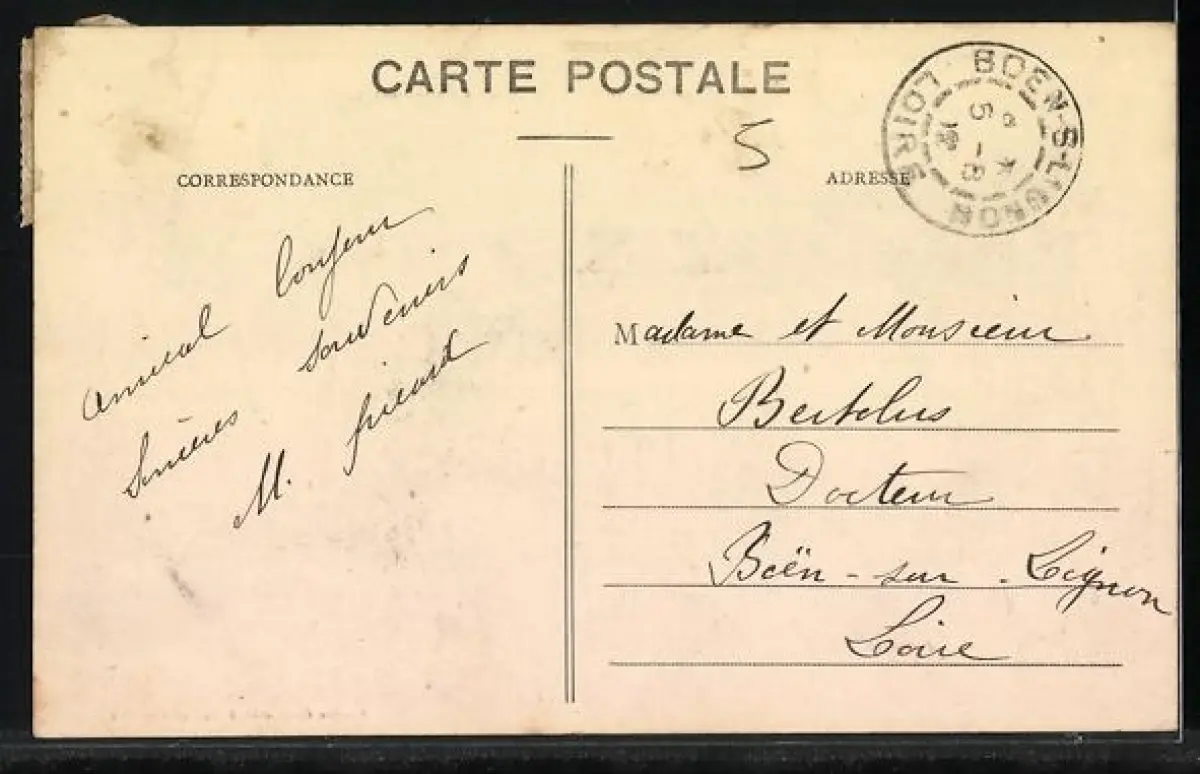 CARTE POSTALE
5
CORRESPONDANCE
ADRESSE
BOEN-S-LIGNON
LOIRE
5 - 8
amical bonjour
souvenirs
M.
Madame et Monsieur
Bertolus
Docteur
Boën-sur-Lignon
Loire